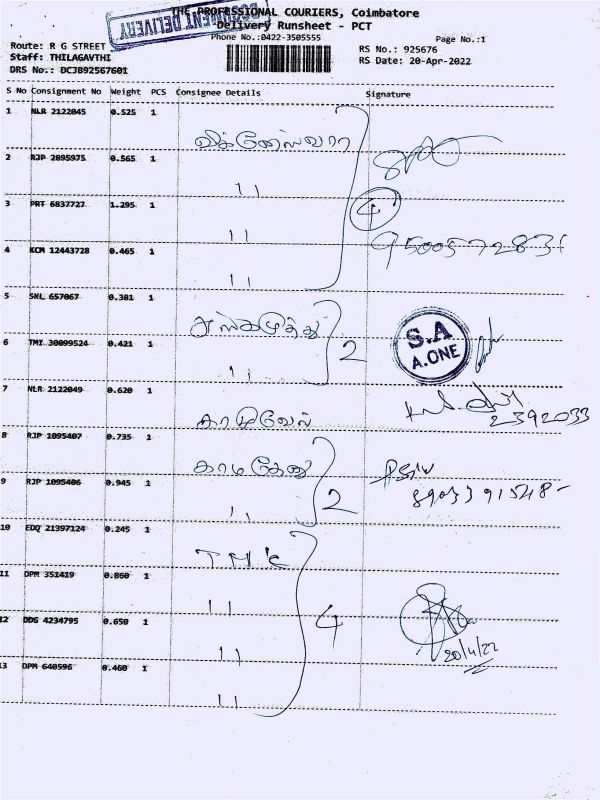 DOCUMENT DELIVERY
THE PROFESSIONAL COURIERS, Coimbatore
Delivery Runsheet - PCT
Phone No.:0422-3505555
Page No.:1
Route: R G STREET
RS No.: 925676
Staff: THILAGAVTHI
RS Date: 20-Apr-2022
DRS No.: DCJB92567601
S No Consignment No Weight PCS Consignee Details Signature
1 NLR 2122045 0.525 1
விக்னேஸ்வரா
2 RJP 2895975 0.565 1
11
3 PRT 6837727 1.295 1
4
11
4 KCM 12443728 0.465 1
11
5 SKL 657067 0.381 1
S.A
A.ONE
6 TMI 30099524 0.421 1
2
11
7 NLR 2122049 0.620 1
2392033
8 RJP 1095407 0.735 1
9 RJP 1095406 0.945 1
11
2
10 EDQ 21397124 0.245 1
TMK
11 DPM 351419 0.860 1
11
4
12 DDG 4234795 0.650 1
11
20/4/22
13 DPM 640596 0.460 1
11